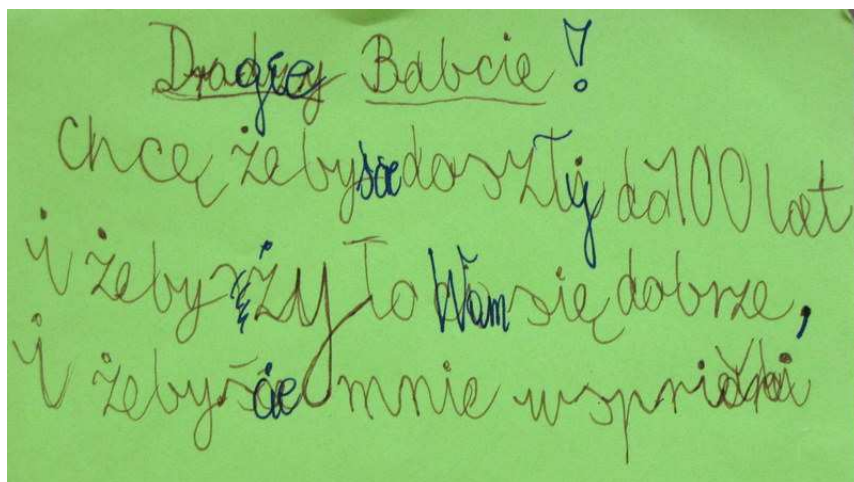 Drogie Babcie!
Chcę żebyście doszły do 100 lat
i żeby żyło Wam się dobrze,
i żebyście mnie